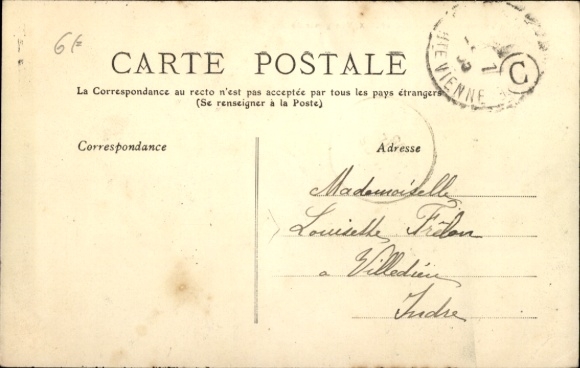 6f
CARTE POSTALE
La Correspondance au recto n'est pas acceptée par tous les pays étrangers
(Se renseigner à la Poste)
Correspondance
Adresse
Mademoiselle
Louisette
a Villedieu
Indre
HTE VIENNE
C